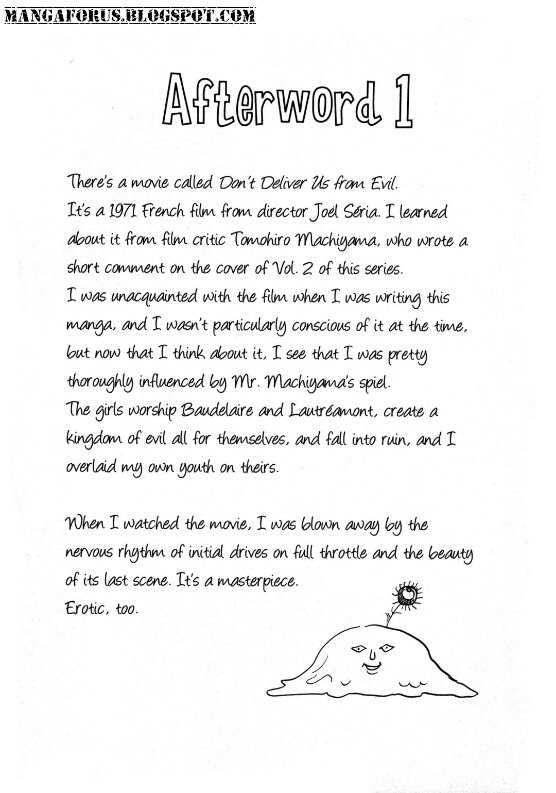 MANGAFORUS.BLOGSPOT.COM
Afterword 1
There's a movie called Don't Deliver Us from Evil.
It's a 1971 French film from director Joël Séria. I learned
about it from film critic Tomohiro Machiyama, who wrote a
short comment on the cover of Vol. 2 of this series.
I was unacquainted with the film when I was writing this
manga, and I wasn't particularly conscious of it at the time,
but now that I think about it, I see that I was pretty
thoroughly influenced by Mr. Machiyama's spiel.
The girls worship Baudelaire and Lautréamont, create a
kingdom of evil all for themselves, and fall into ruin, and I
overlaid my own youth on theirs.
When I watched the movie, I was blown away by the
nervous rhythm of initial drives on full throttle and the beauty
of its last scene. It's a masterpiece.
Erotic, too.